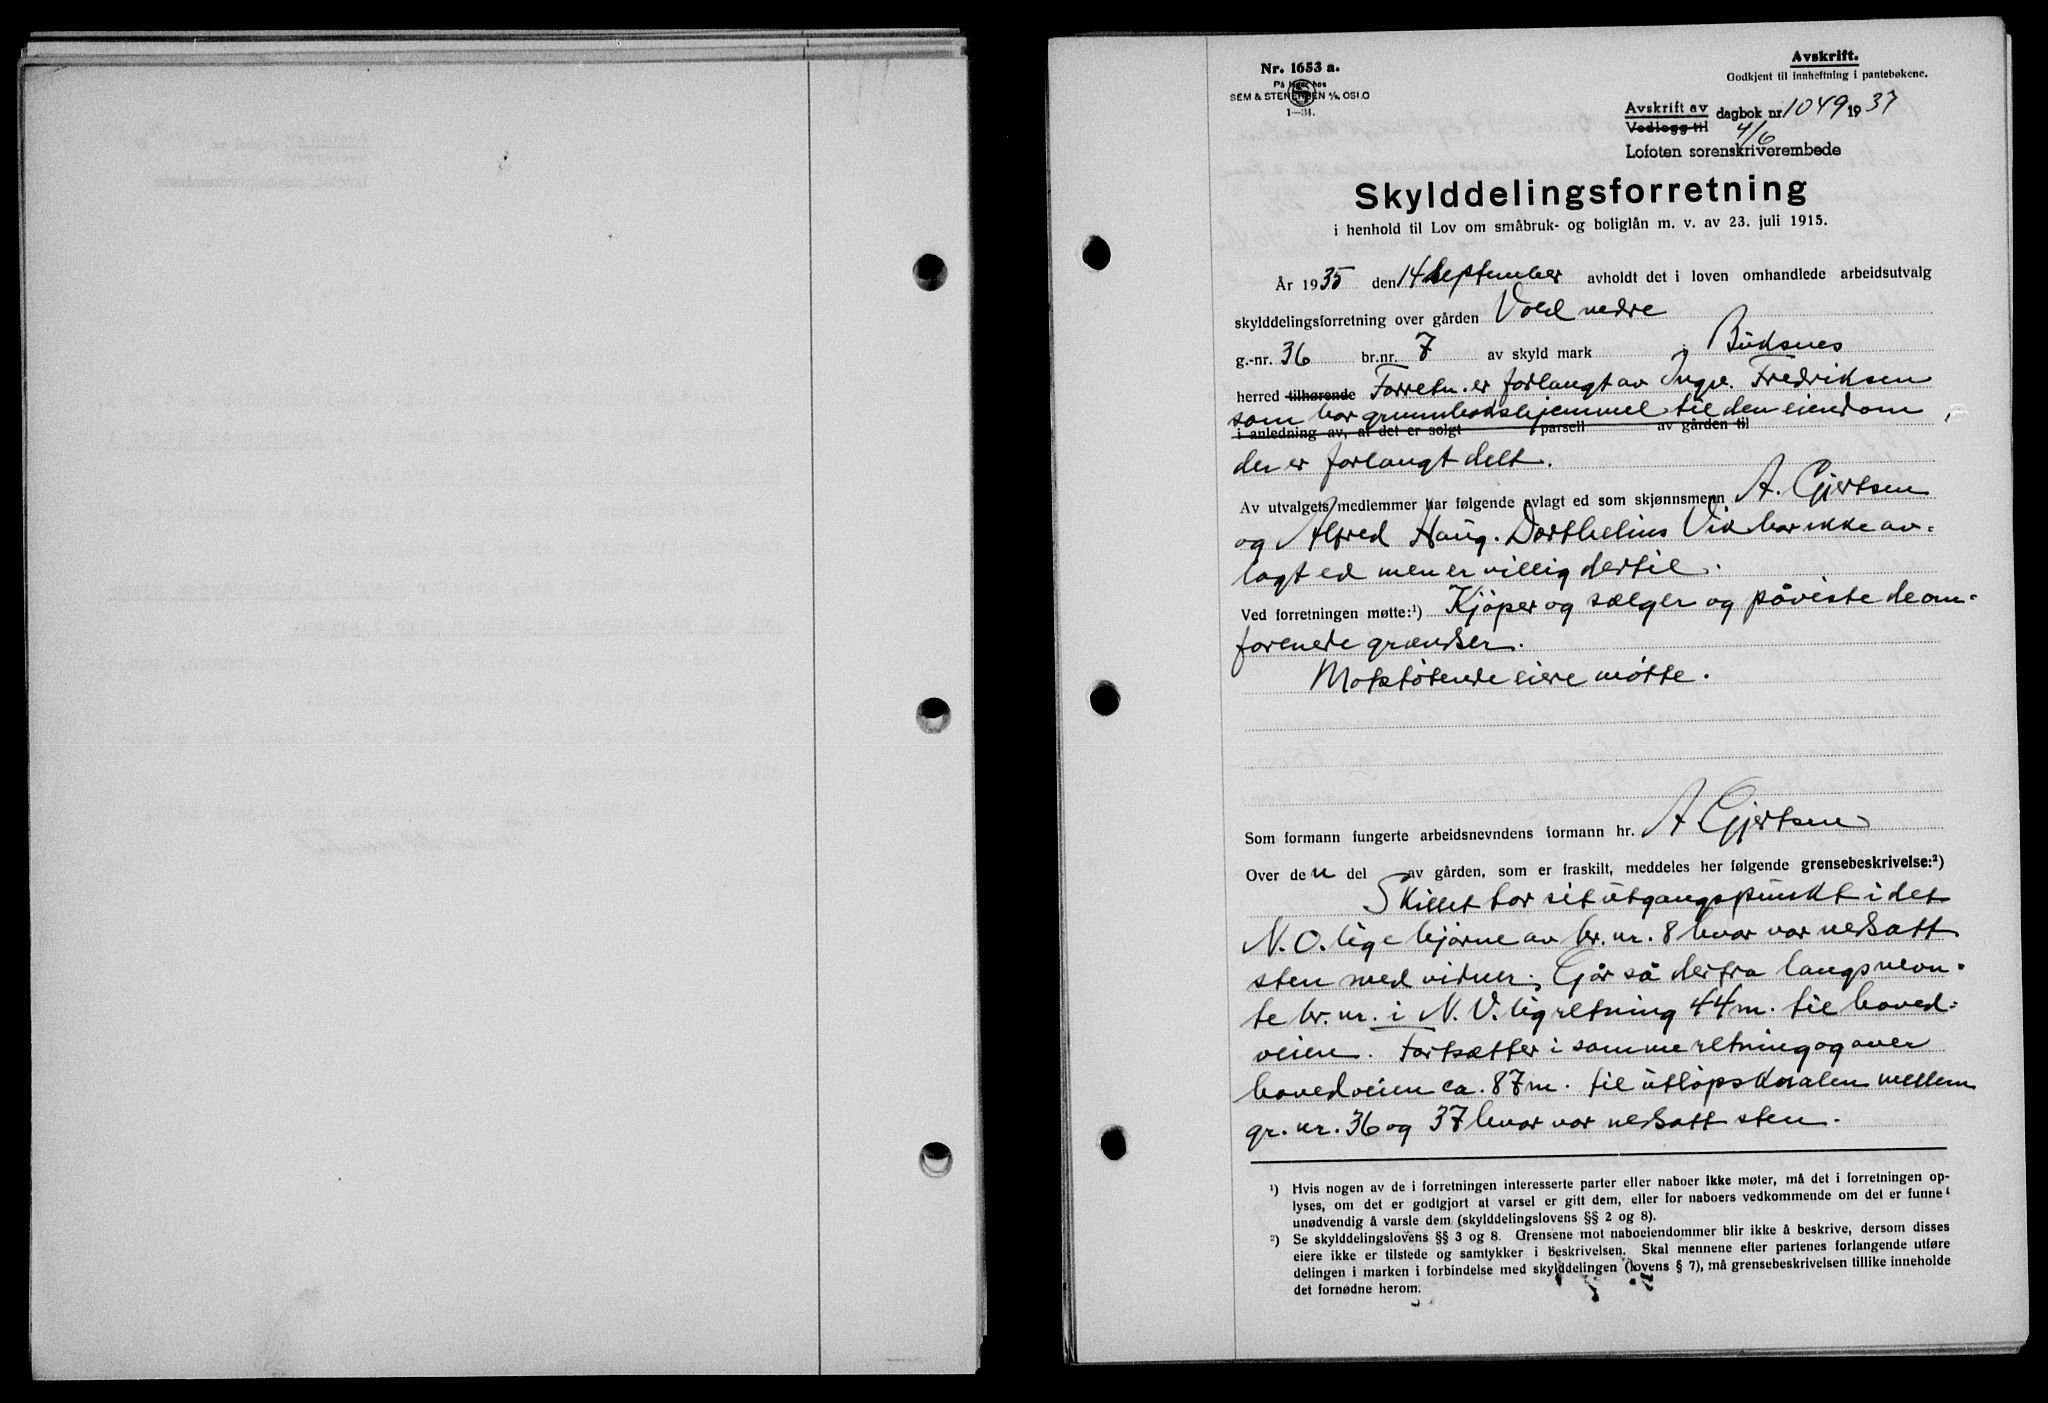 Nr. 1653 a.
På lager hos
SEM & STENERSEN A/S OSLO
1—34.
Avskrift.
Godkjent til innheftning i pantebøkene.
Avskrift av dagbok nr. 1049 1937
Vedlegg til 4/6
Lofoten sorenskriverembede
Skylddelingsforretning
i henhold til Lov om småbruk- og boliglån m. v. av 23. juli 1915.
År 1935 den 14 september avholdt det i loven omhandlede arbeidsutvalg
skylddelingsforretning over gården Vold nedre
g.-nr. 36 br.nr. 7 av skyld mark i Buksnes
herred tilhørende Forretn. er forlangt av Ingv. Fredriksen
som har grunnbokshjemmel til den eiendom
i anledning av, at det er solgt parsell av gården til
der er forlangt delt.
Av utvalgets medlemmer har følgende avlagt ed som skjønnsmenn A. Gjertsen
og Alfred Haug. Dorthelius Vik har ikke av-
lagt ed men er villig dertil.
Ved forretningen møtte:¹) Kjøper og sælger og påviste de om-
forenede grændser.
Motstøtende eiere møtte.
Som formann fungerte arbeidsnevndens formann hr. A Gjertsen
Over den del av gården, som er fraskilt, meddeles her følgende grensebeskrivelse:²)
Skillet tar sit utgangspunkt i det
N. O. lige hjørne av br. nr. 8 hvor var nedsatt
sten med vidner. Går så derfra langs nevn-
te br. nr. i N. V. lig retning 44 m. til hoved-
veien. Fortsætter i samme retning og over
hovedveien ca. 87 m. til utløpskanalen mellem
gr. nr. 36 og 37 hvor var nedsatt sten.
¹) Hvis nogen av de i forretningen interesserte parter eller naboer ikke møter, må det i forretningen op-
lyses, om det er godtgjort at varsel er gitt dem, eller for naboers vedkommende om det er funnet
unødvendig å varsle dem (skylddelingslovens §§ 2 og 8).
²) Se skylddelingslovens §§ 3 og 8. Grensene mot naboeiendommer blir ikke å beskrive, dersom disses
eiere ikke er tilstede og samtykker i beskrivelsen. Skal mennene efter partenes forlangende utføre
delingen i marken i forbindelse med skylddelingen (lovens § 7), må grensebeskrivelsen tillike inneholde
det fornødne herom.